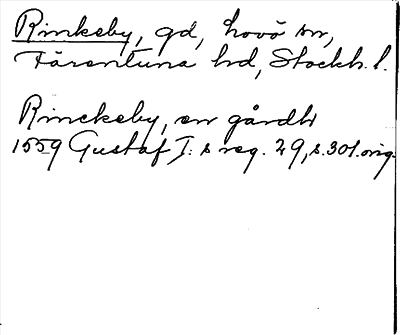 Rinkeby, gd, Lovö sn,
Färentuna hd, Stockh. l.
Rinckeby, en gårdh
1559 Gustaf I:s reg. 29, s. 301. orig.